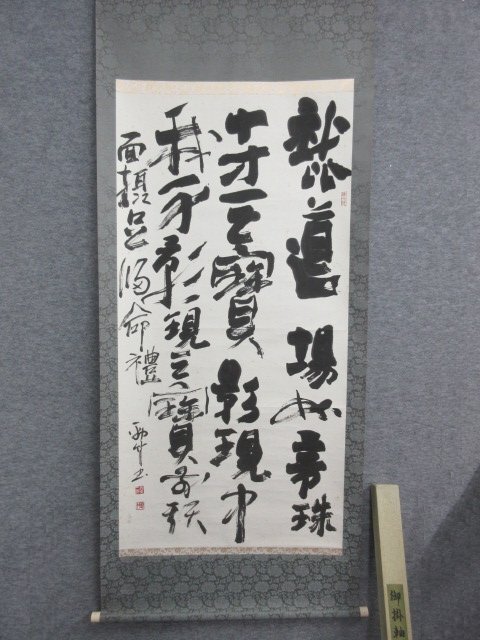 此道場如帝珠
十方三寶影現中
我身影現三寶前頭
面足歸命禮
書
御掛軸